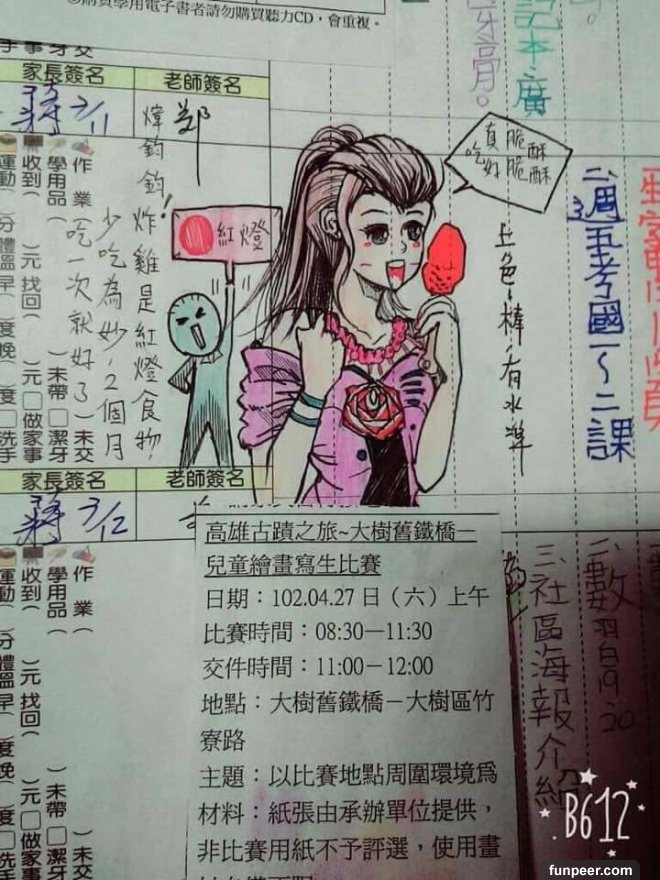 購買學用電子書者請勿購買聽力CD，會重複。
牙膏。
記本、廣
家長簽名
老師簽名
蔣 3/11
鄭
煒鈞鈞！炸雞是紅燈食物，
少吃為妙，2個月
吃一次就好了
紅燈
真脆酥
吃脆酥
好
上色、棒、有水準
二、週五考國一~二課
3.
作業（
學用品（
收到（ ）元 找回（ ）元
）未帶
）未交
做家事
潔牙
洗手
運動（ ）分
體溫 早（ ）度 晚（ ）度
家長簽名
老師簽名
蔣 3/12
高雄古蹟之旅~大樹舊鐵橋—
兒童繪畫寫生比賽
日期：102.04.27 日（六）上午
比賽時間：08:30—11:30
交件時間：11:00－12:00
地點：大樹舊鐵橋－大樹區竹
寮路
主題：以比賽地點周圍環境為
材料：紙張由承辦單位提供，
非比賽用紙不予評選，使用畫
二、數習白19.20
三、社區海報介紹
作業（
學用品（
收到（ ）元 找回（ ）元
）未帶
）未交
做家事
潔牙
洗手
運動（ ）分
體溫 早（ ）度 晚（ ）度
B612
funpeer.com